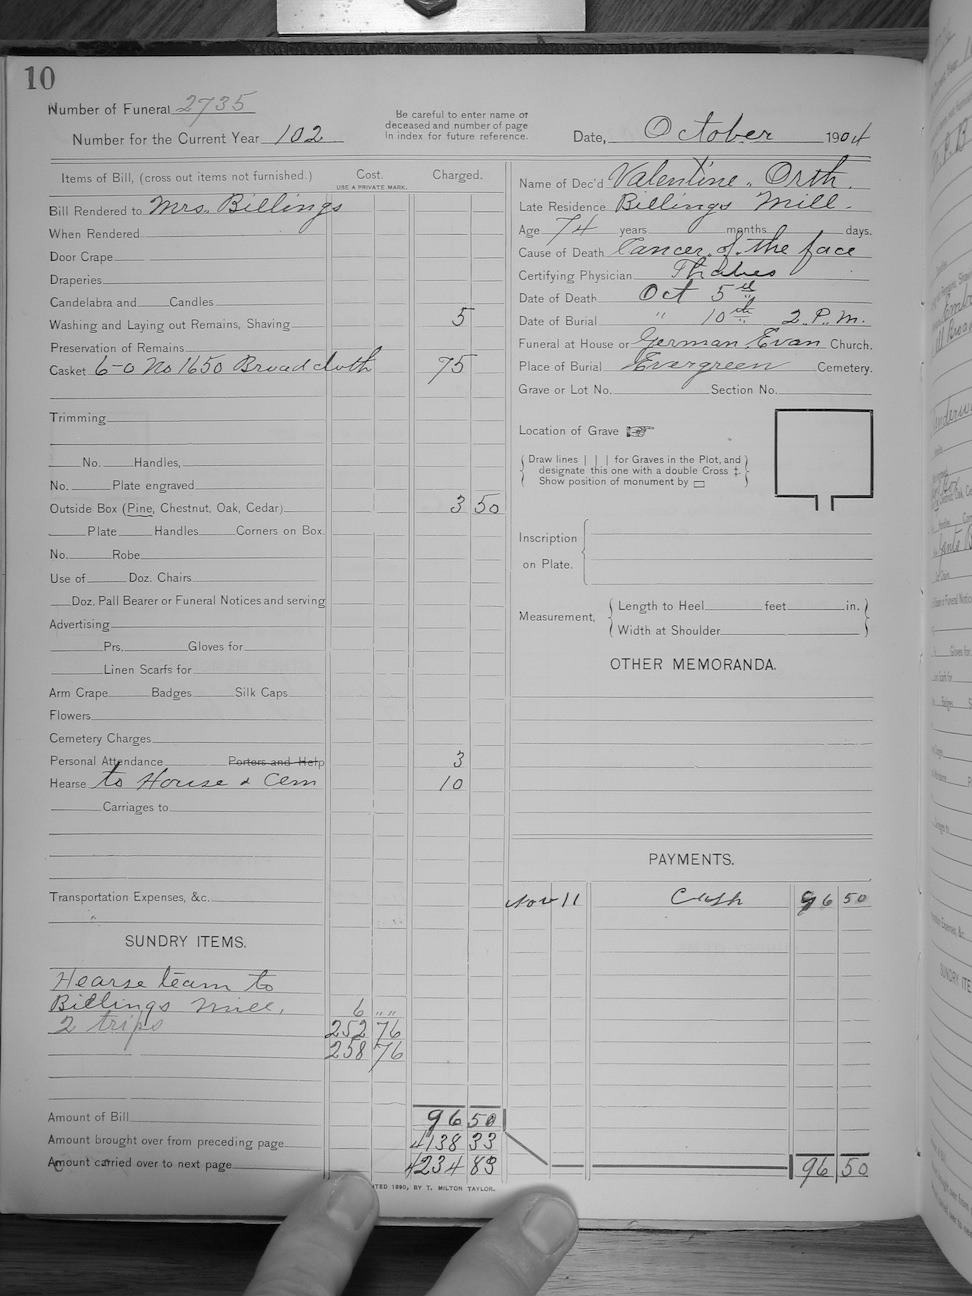 10
Number of Funeral 2735
Number for the Current Year 102
Be careful to enter name of
deceased and number of page
in index for future reference.
Date, October 1904
Items of Bill, (cross out items not furnished.) Cost. Charged.
USE A PRIVATE MARK.
Bill Rendered to Mrs. Billings
When Rendered
Door Crape
Draperies
Candelabra and Candles
Washing and Laying out Remains, Shaving 5
Preservation of Remains
Casket 6-0 No 1650 Broadcloth 75
Trimming
No. Handles,
No. Plate engraved
Outside Box (Pine, Chestnut, Oak, Cedar) 3 50
Plate Handles Corners on Box.
No. Robe
Use of Doz. Chairs
Doz. Pall Bearer or Funeral Notices and serving
Advertising
Prs. Gloves for
Linen Scarfs for
Arm Crape Badges Silk Caps
Flowers
Cemetery Charges
Personal Attendance Porters and Help 3
Hearse to House & Cem 10
Carriages to
Transportation Expenses, &c.
SUNDRY ITEMS.
Hearse team to
Billings Mill, 6 " "
2 trips 252 76
258 76
Amount of Bill 96 50
Amount brought over from preceding page 4138 33
Amount carried over to next page 4234 83
TED 1890, BY T. MILTON TAYLOR.
Name of Dec'd Valentine Orth.
Late Residence Billings Mill.
Age 74 years months days.
Cause of Death Cancer of the face
Certifying Physician
Date of Death Oct 5th
Date of Burial " 10th 2 P.M.
Funeral at House or German Evan Church.
Place of Burial Evergreen Cemetery.
Grave or Lot No. Section No.
Location of Grave
Draw lines | | | for Graves in the Plot, and
designate this one with a double Cross ‡.
Show position of monument by ▭
Inscription
on Plate.
Measurement,
Length to Heel feet in.
Width at Shoulder
OTHER MEMORANDA.
PAYMENTS.
Nov 11 Cash 96 50
96 50